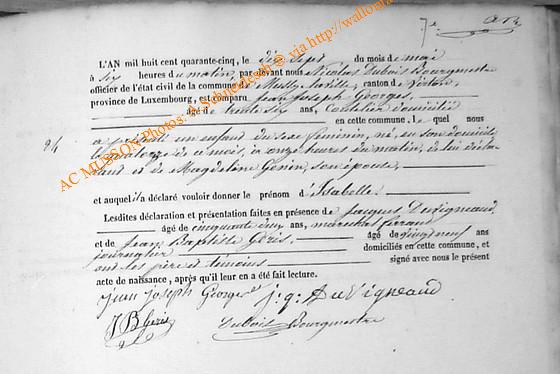 L'AN mil huit cent quarante-cinq, le dix sept du mois de mai
à six heures du matin, par devant nous Nicolas Dubois Bourgmestre
officier de l'état civil de la commune de Mussy-la-Ville, canton de Virton,
province de Luxembourg, est comparu Jean Joseph Georges,
âgé de trente six ans, domicilié
en cette commune, lequel nous
24
a présenté un enfant du sexe féminin, né, en son domicile
le quatorze de ce mois, à onze heures du matin, de lui décla-
rant et de Magdeleine Genin, son épouse,
et auquel il a déclaré vouloir donner le prénom d'Isabelle.
Lesdites déclaration et présentation faites en présence de Jacques Duvigneaud,
âgé de cinquante deux ans, maréchal ferrant
et de Jean Baptiste Géris, âgé de vingt neuf ans
journalier domiciliés en cette commune, et
ont les père et témoins signé avec nous le présent
acte de naissance, après qu'il leur en a été fait lecture.
Jean Joseph Georges j. q. Duvigneaud
J B Geris
Dubois Bourgmestre
AC MUSSON Photos: A. via http://wallonia